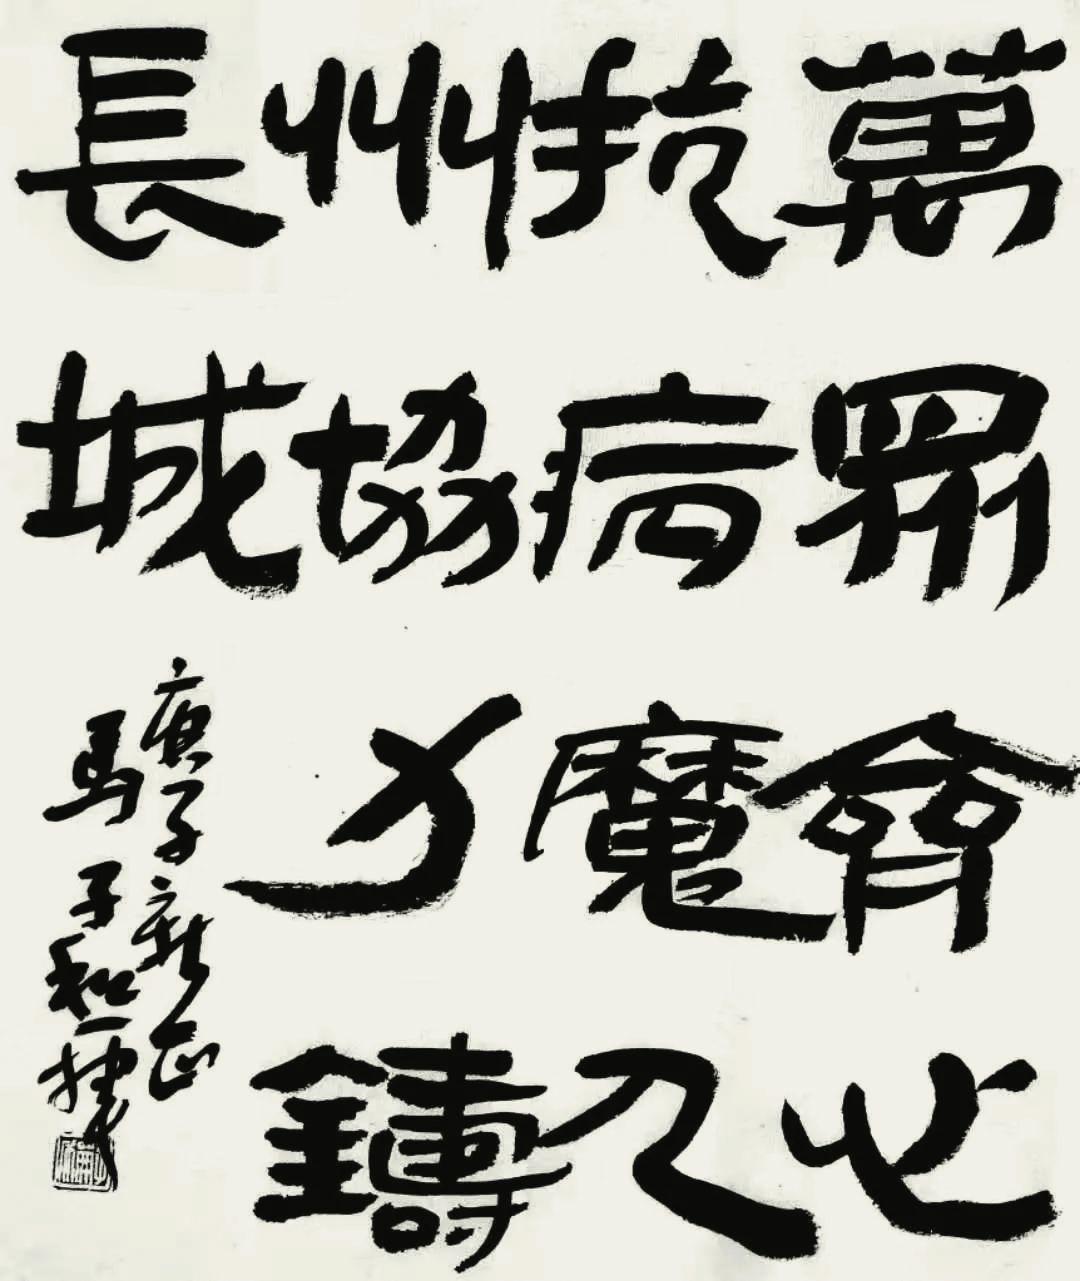 萬眾齊心
抗病魔九
州協力鑄
長城
庚子新正
馬子和